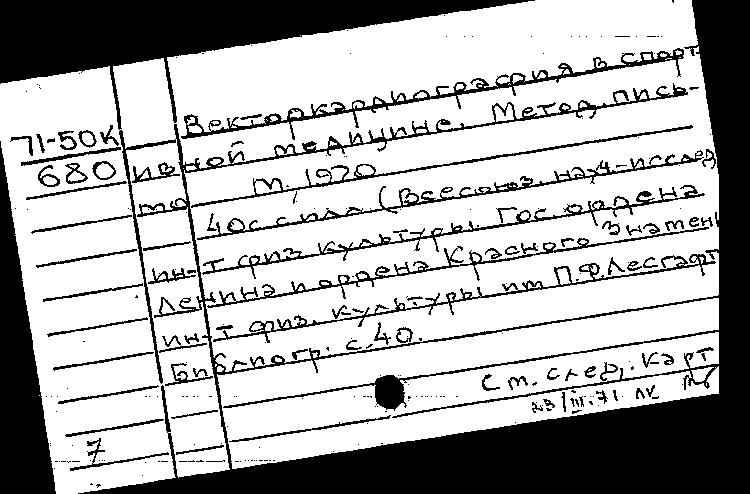 Векторкардиография в спорт
71-50К ивной медицине. Метод. пись-
680 мо М., 1970
40с с илл (Всесоюз. науч-исслед
ин-т физ культуры. Гос. ордена
Ленина и ордена Красного Знамени
ин-т физ. культуры им П.Ф.Лесгафт
Библиогр. с.40.
См. след. карт
23/III.71 ЛК
7